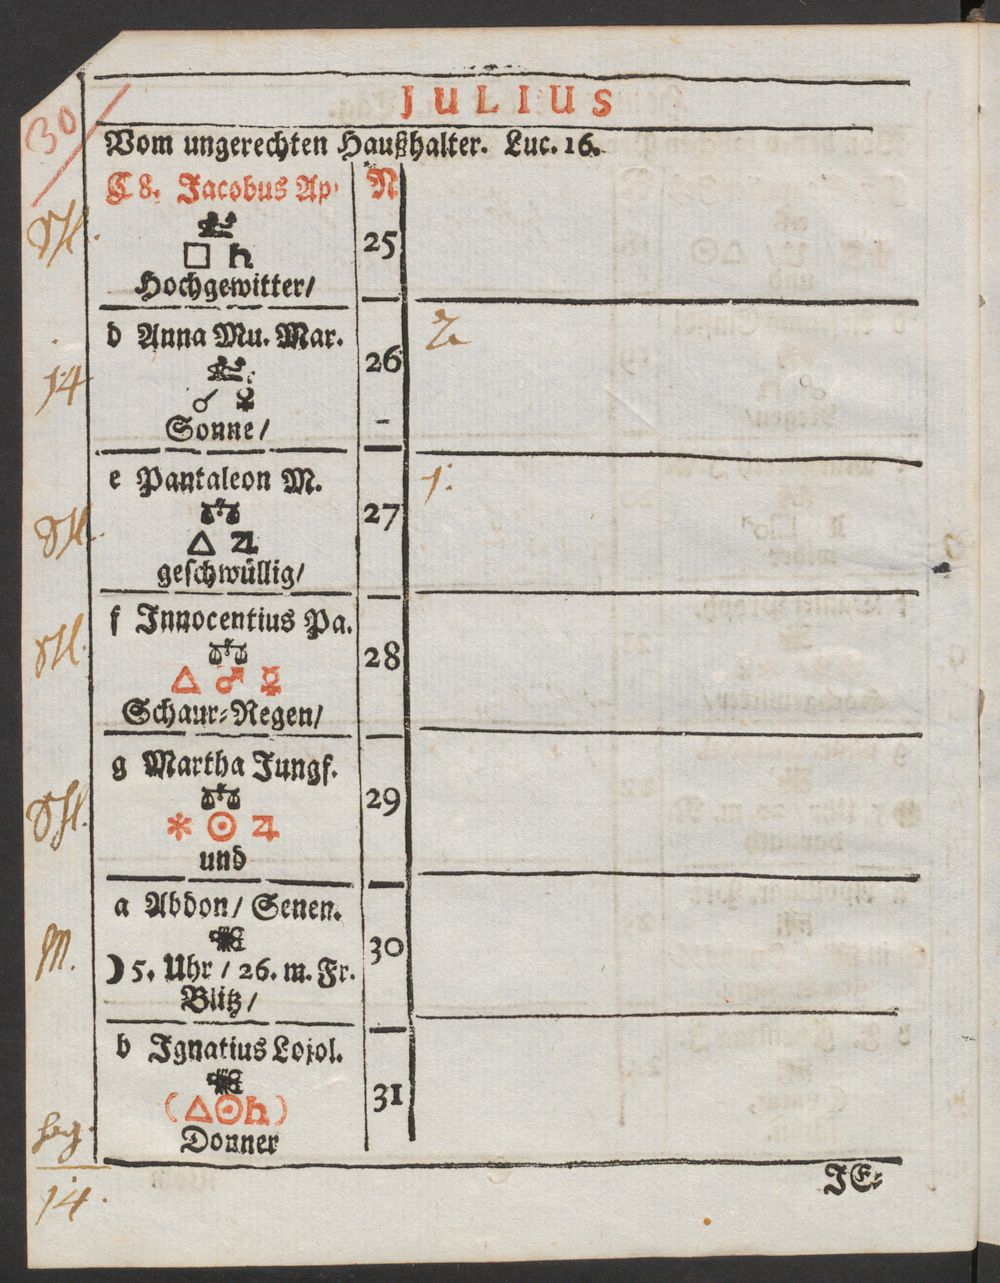 JULIUS
30
Vom ungerechten Haußhalter. Luc. 16.
C 8. Jacobus Ap. N
□ ♄ 25
Hochgewitter/
d Anna Mu. Mar.
26 2.
14
☌ ☿
Sonne/
e Pantaleon M. 1.
27
△ ♃
geschwüllig/
f Innocentius Pa.
28
△ ♂ ☿
Schaur-Regen/
g Martha Jungf.
29
✱ ☉ ♃
und
a Abdon/ Senen.
M. 30
☽ 5. Uhr / 26. m. Fr.
Blitz/
b Ignatius Lojol.
31
(△☉♄)
Donner
14.
JE-